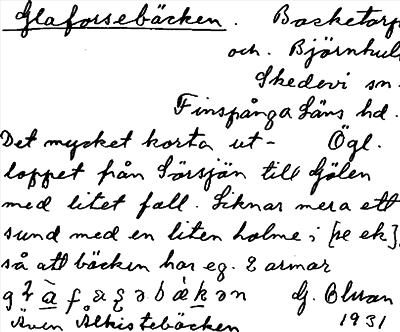 Glaforsebäcken. Basketorp
och. Björnhult
Skedevi sn.
Finspånga Läns hd.
Det mycket korta ut- Ögl.
loppet från Sörsjön till Gölen
med litet fall. Liknar mera ett
sund med en liten holme i [se ek],
så att bäcken har eg. 2 armar
1931
Även Ålkistebäcken